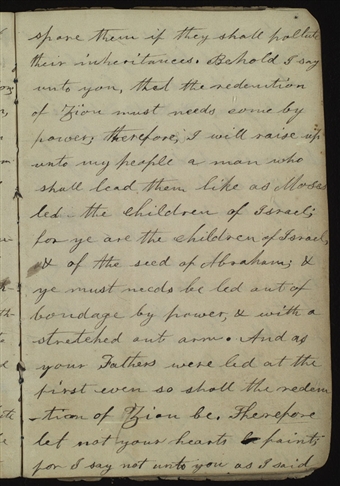 spare them if they shall pollute
their inheritances. Behold I say
unto you, that the redemtion
of Zion must needs come by
power; therefore, I will raise up
unto my people a man who
shall lead them like as Moses
led the children of Israel;
for ye are the children of Israel,
& of the seed of Abraham; &
ye must needs be led out of
bondage by power, & with a
stretched out arm. And as
your Fathers were led at the
first even so shall the redem
-tion of Zion be. Therefore
let not your hearts faint;
for I say not unto you as I said